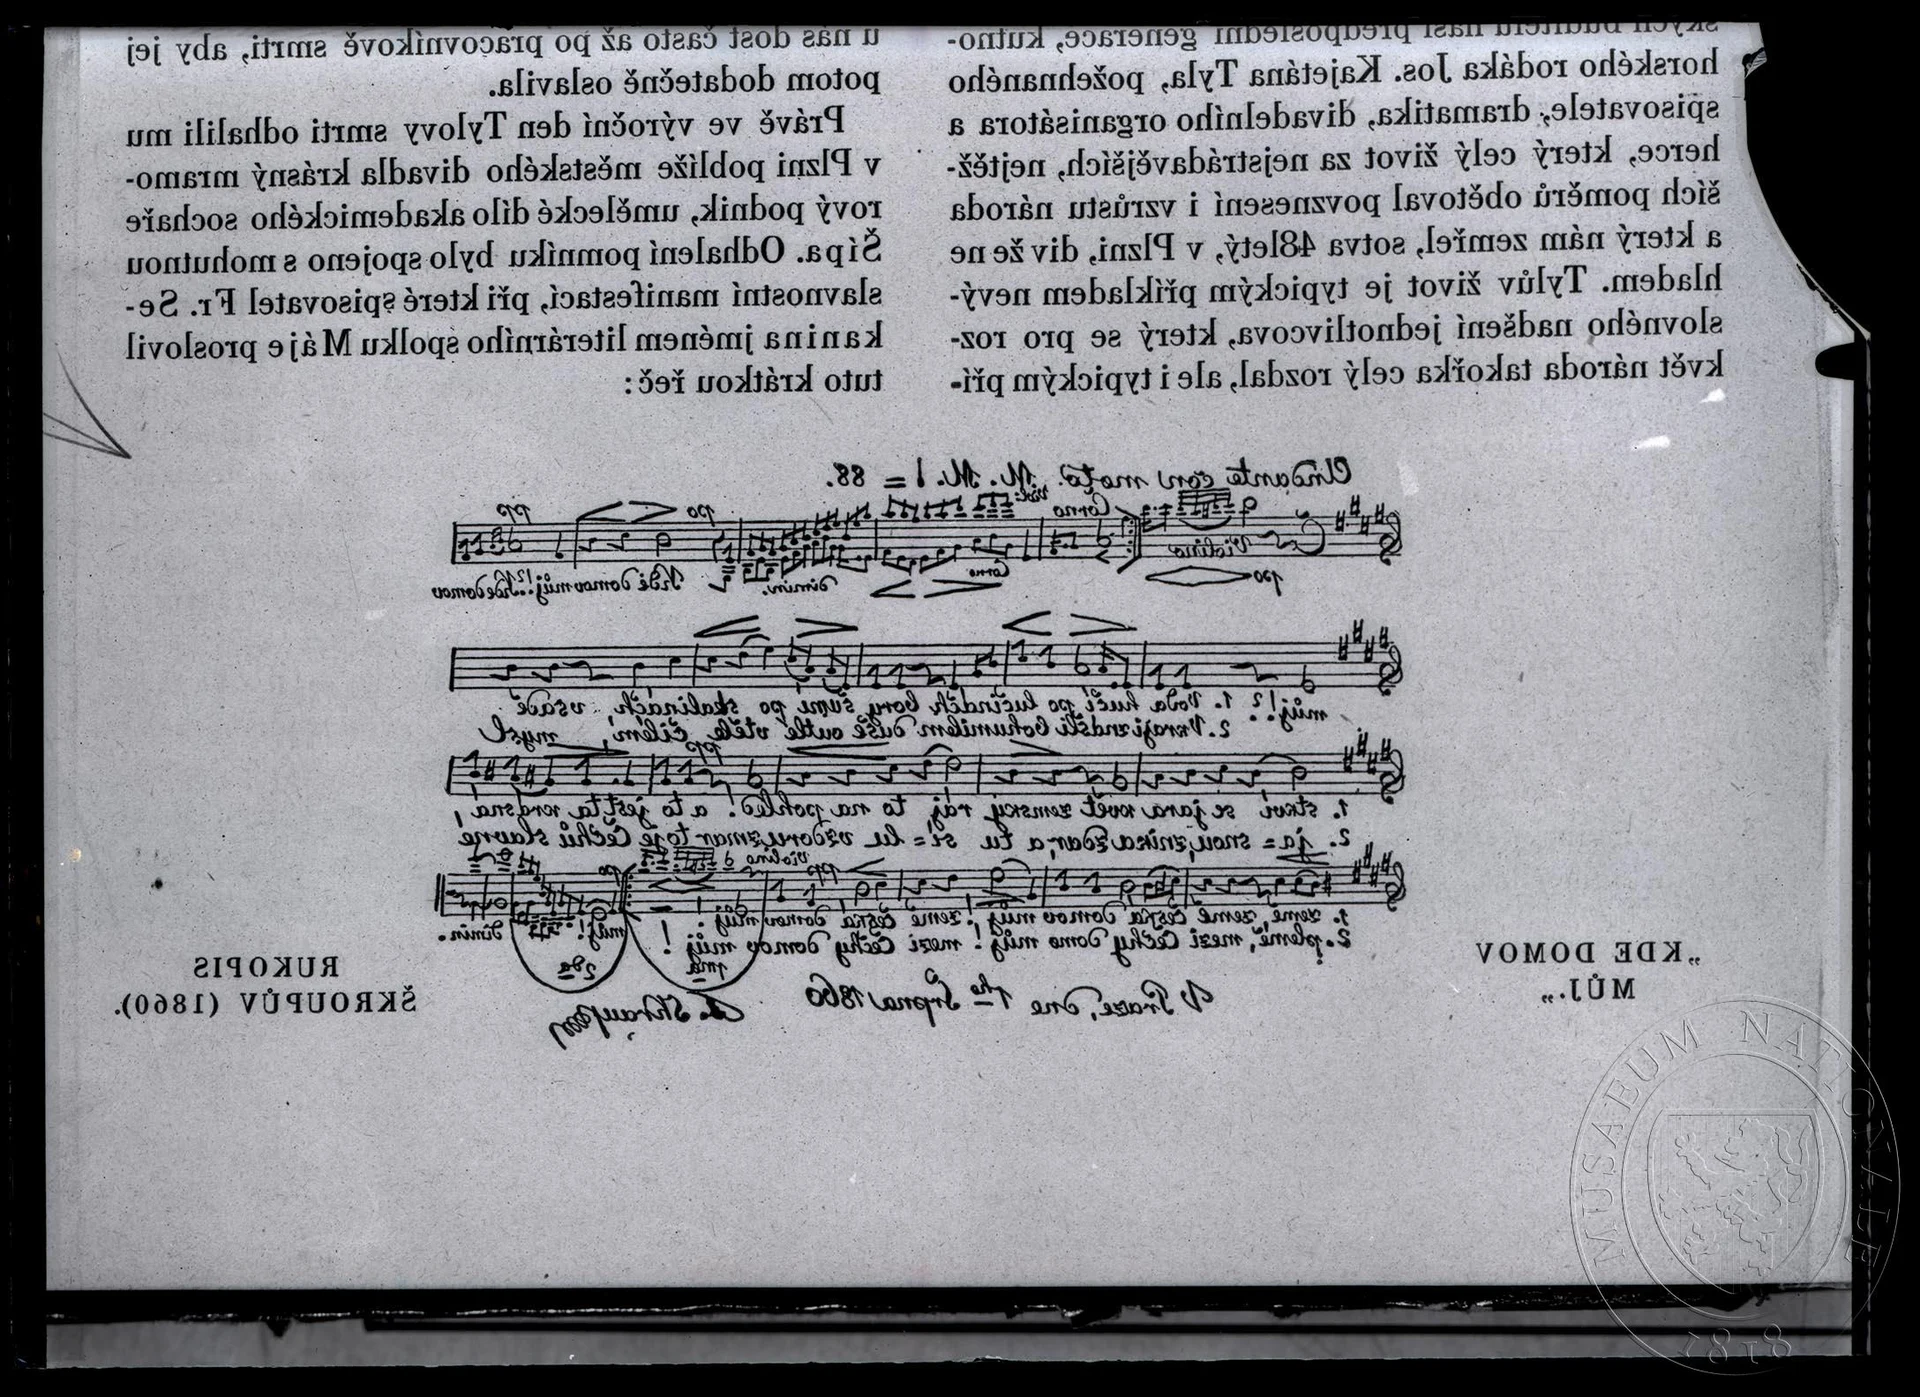 ských buditelů naší předposlední generace, kutno-
horského rodáka Jos. Kajetána Tyla, požehnaného
spisovatele, dramatika, divadelního organisátora a
herce, který celý život za nejstrádavějších, nejtěž-
ších poměrů obětoval povznesení i vzrůstu národa
a který nám zemřel, sotva 48letý, v Plzni, div že ne
hladem. Tylův život je typickým příkladem nevý-
slovného nadšení jednotlivcova, který se pro roz-
květ národa takořka celý rozdal, ale i typickým pří-
u nás dost často až po pracovníkově smrti, aby jej
potom dodatečně oslavila.
Právě ve výroční den Tylovy smrti odhalili mu
v Plzni poblíže městského divadla krásný mramo-
rový podnik, umělecké dílo akademického sochaře
Šípa. Odhalení pomníku bylo spojeno s mohutnou
slavnostní manifestací, při které spisovatel Fr. Se-
kanina jménem literárního spolku Máje proslovil
tuto krátkou řeč:
Andante con moto. M. M. = 88.
Corno Viol: po pp
Violino
po Corno dimin. Kde domov můj!? Kde domov
můj!? 1. Voda hučí po lučinách, bory šumí po skalinách, v sadě
2. V kraji znáš-li bohumilém duše outlé v těle čilém, mysl
pp
1. stkví se jara květ zemský ráj to na pohled! a to jest ta krásná,
2. ja= snou, znik a zdar, a tu sí= lu vzdoru zmar to je Čechů slavné
pp Violino po
1. země, země česká domov můj! země česká domov můj! můj! dimin.
2. plémě, mezi Čechy domov můj! mezi Čechy domov můj!
1ma 2da
V Praze, dne 1ho Srpna 1860 F. Škraup
„KDE DOMOV
MŮJ.„
RUKOPIS
ŠKROUPŮV (1860).
MUSAEUM NATIONALE
1818